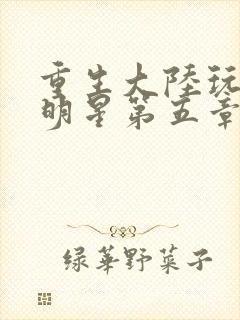 重生大陆玩
明星第五章
绿华野菜子